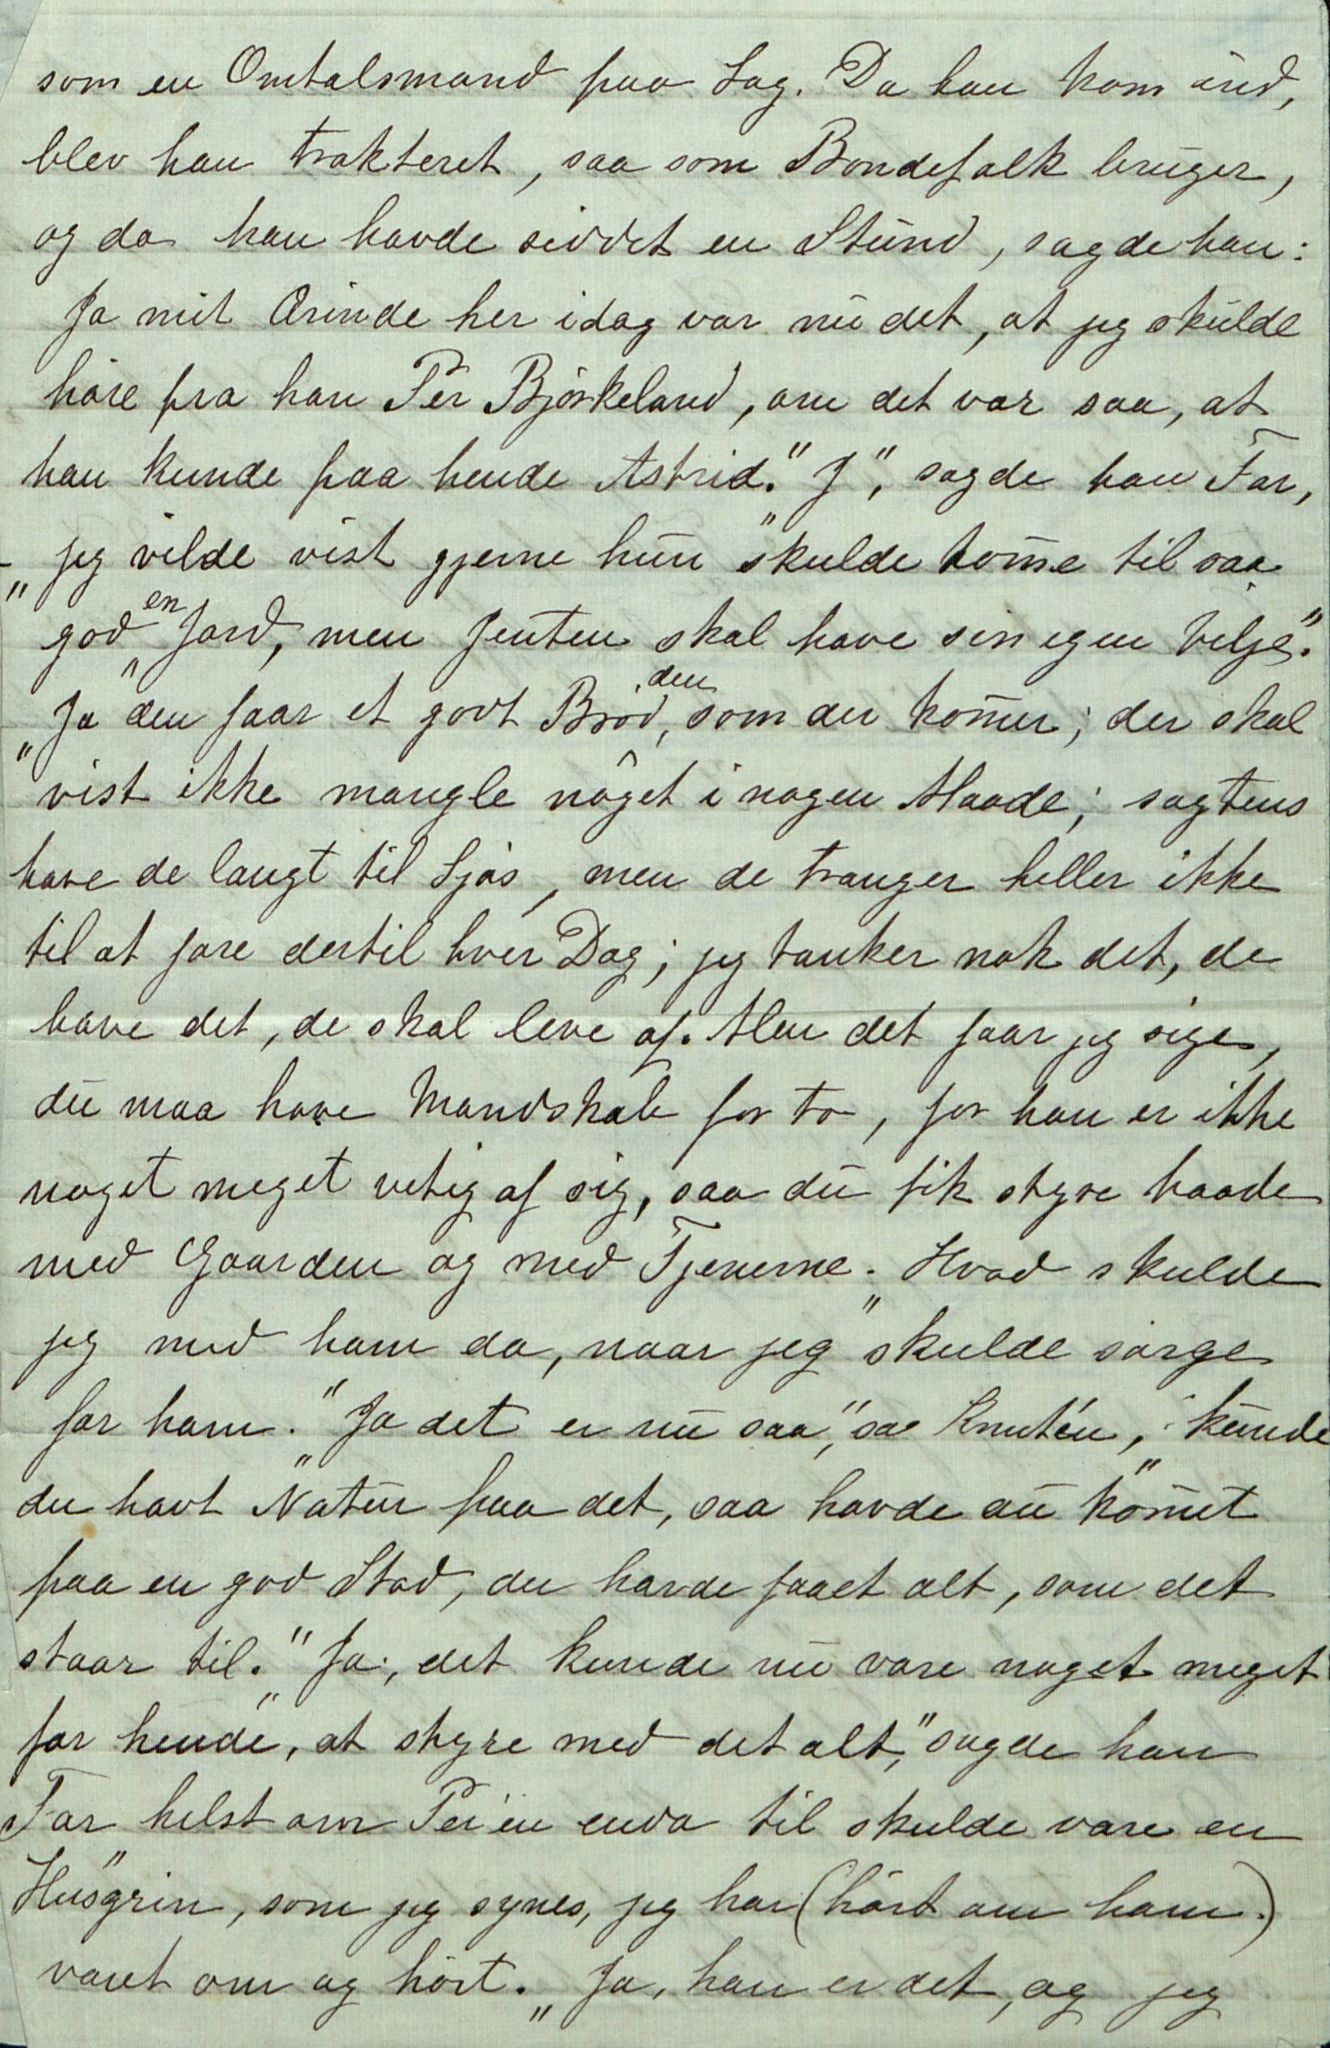 som en Omtalsmand paa Sag. Da han kom ind,
blev han trakteret, saa som Bondefolk bruger,
og da han havde siddet en Stund, sagde han:
Ja mit Ærinde her idag var nu det, at jeg skulde
høre fra han Per Bjørkeland, om det var saa, at
han kunde faa hende Astrid." J", sagde han Far,
„jeg vilde vist gjerne hun skulde komme til saa
god en Jord, men Jenten skal have sin egen Vilje."
„Ja den faar et godt Brød, den som der kommer; der skal
vist ikke mangle noget i nogen Maade; sagtens
have de langt til Sjøs, men de trænger heller ikke
til at fare dertil hver Dag; jeg tænker nok det, de
have det, de skal leve af. Men det faar jeg sige,
du maa have Mandskab for to, for han er ikke
noget meget vetig af sig, saa du fik styre baade
med Gaarden og med Tjenerne. „Hvad skulde
jeg med ham da, naar jeg skulde sørge
for ham." „Ja det er nu saa", sa Knut'en, „kunde
du havt Natur paa det, saa havde du kommet
paa en god Stad, du havde faaet alt, som det
staar til." „Ja, det kunde nu være noget meget
for hende, at styre med det alt," sagde han
Far „helst om Per'en enda til skulde være en
Husgrin, som jeg synes, jeg har (hørt om ham.)
været om og hørt. „Ja, han er det, og jeg